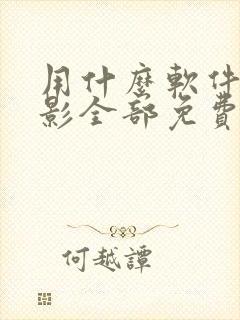 用什麼軟件
影全部免費
何越譚